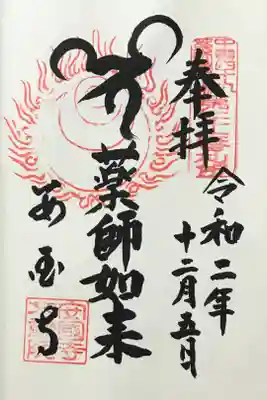 奉拝
令和二年
十二月五日
薬師如来
安国寺